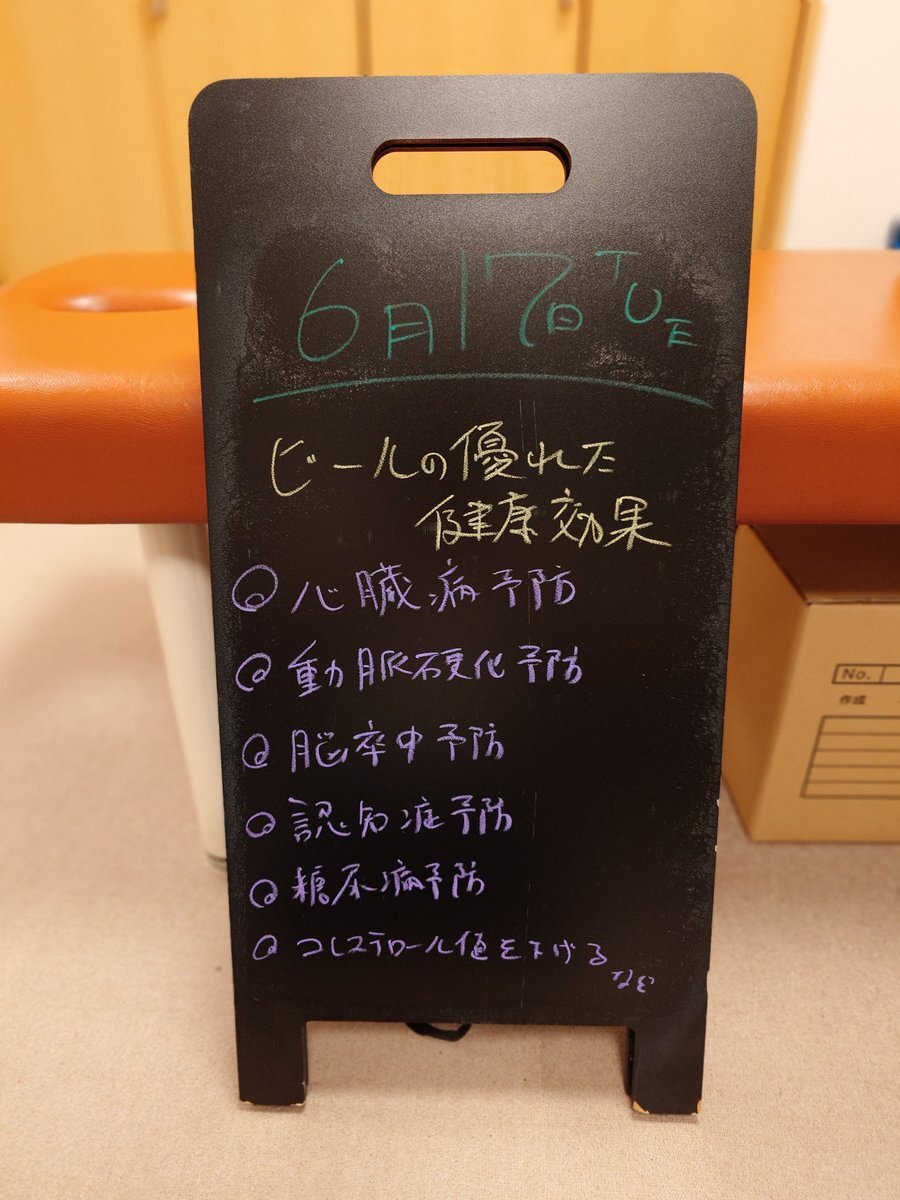 6月17日TUE
ビールの優れた
健康効果
心臓病予防
動脈硬化予防
脳卒中予防
認知症予防
糖尿病予防
コレステロール値を下げる
など
No.
作成